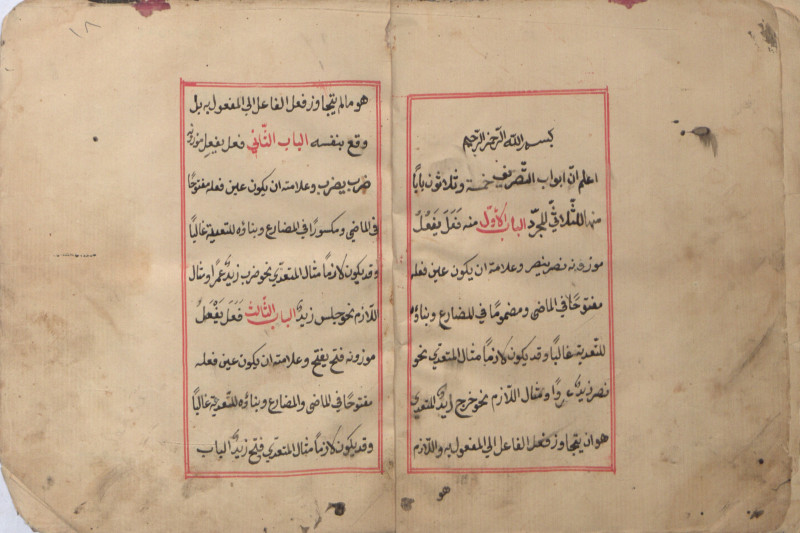 بسم الله الرحمن الرحيم
اعلم ان ابواب التصريف خمسة وثلاثون بابا
منها للثلاثي المجرد الباب الاول منه فَعَلَ يَفْعُلُ
موزونه نصر ينصر وعلامته ان يكون عين فعله
مفتوحًا في الماضي ومضمومًا في المضارع وبناؤه
للتعدية غالبًا وقد يكون لازمًا مثال المتعدي نحو
نصر زيدٌ عمروًا ومثال اللازم نحو خرج زيدٌ المتعدي
هو ان يتجاوز فعل الفاعل الى المفعول به واللازم
هو
١٨
هو مالم يتجاوز فعل الفاعل الى المفعول به بل
وقع بنفسه الباب الثّاني فعل يفعِل موزونه
ضرب يضرب وعلامته ان يكون عين فعله مفتوحًا
في الماضي ومكسورًا في المضارع وبناؤه للتعدية غالبًا
وقد يكون لازمًا مثال المتعدّي نحو ضرب زيدٌ عمرًا ومثال
اللازم نحو جلس زيدٌ الباب الثّالث فَعَلَ يَفْعَلُ
موزونه فتح يفتح وعلامته ان يكون عين فعله
مفتوحًا في الماضي والمضارع وبناؤه للتعدية غالبًا
وقد يكون لازمًا مثال المتعدي فتح زيدٌ الباب